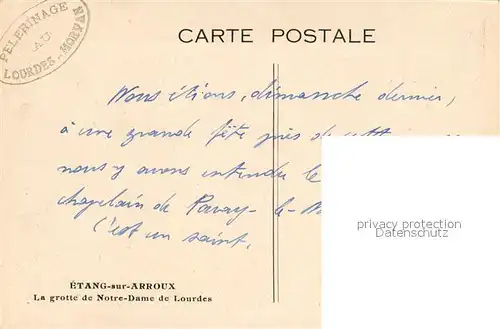 PELERINAGE
AU
LOURDES-MORVAN
CARTE POSTALE
Nous étions, dimanche dernier,
à une grande fête près de cette
nous y avons entendu le
chapelain de Paray-le-
C'est un saint.
privacy protection
Datenschutz
ÉTANG-sur-ARROUX
La grotte de Notre-Dame de Lourdes